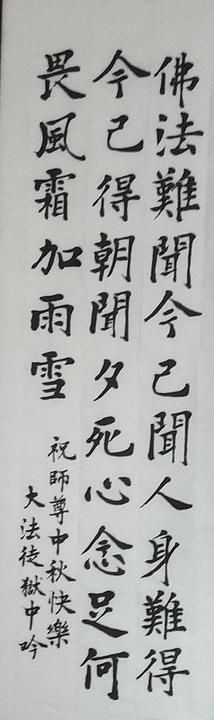 佛法難聞今已聞人身難得
今已得朝聞夕死心念足何
畏風霜加雨雪
祝師尊中秋快樂
大法徒獄中吟